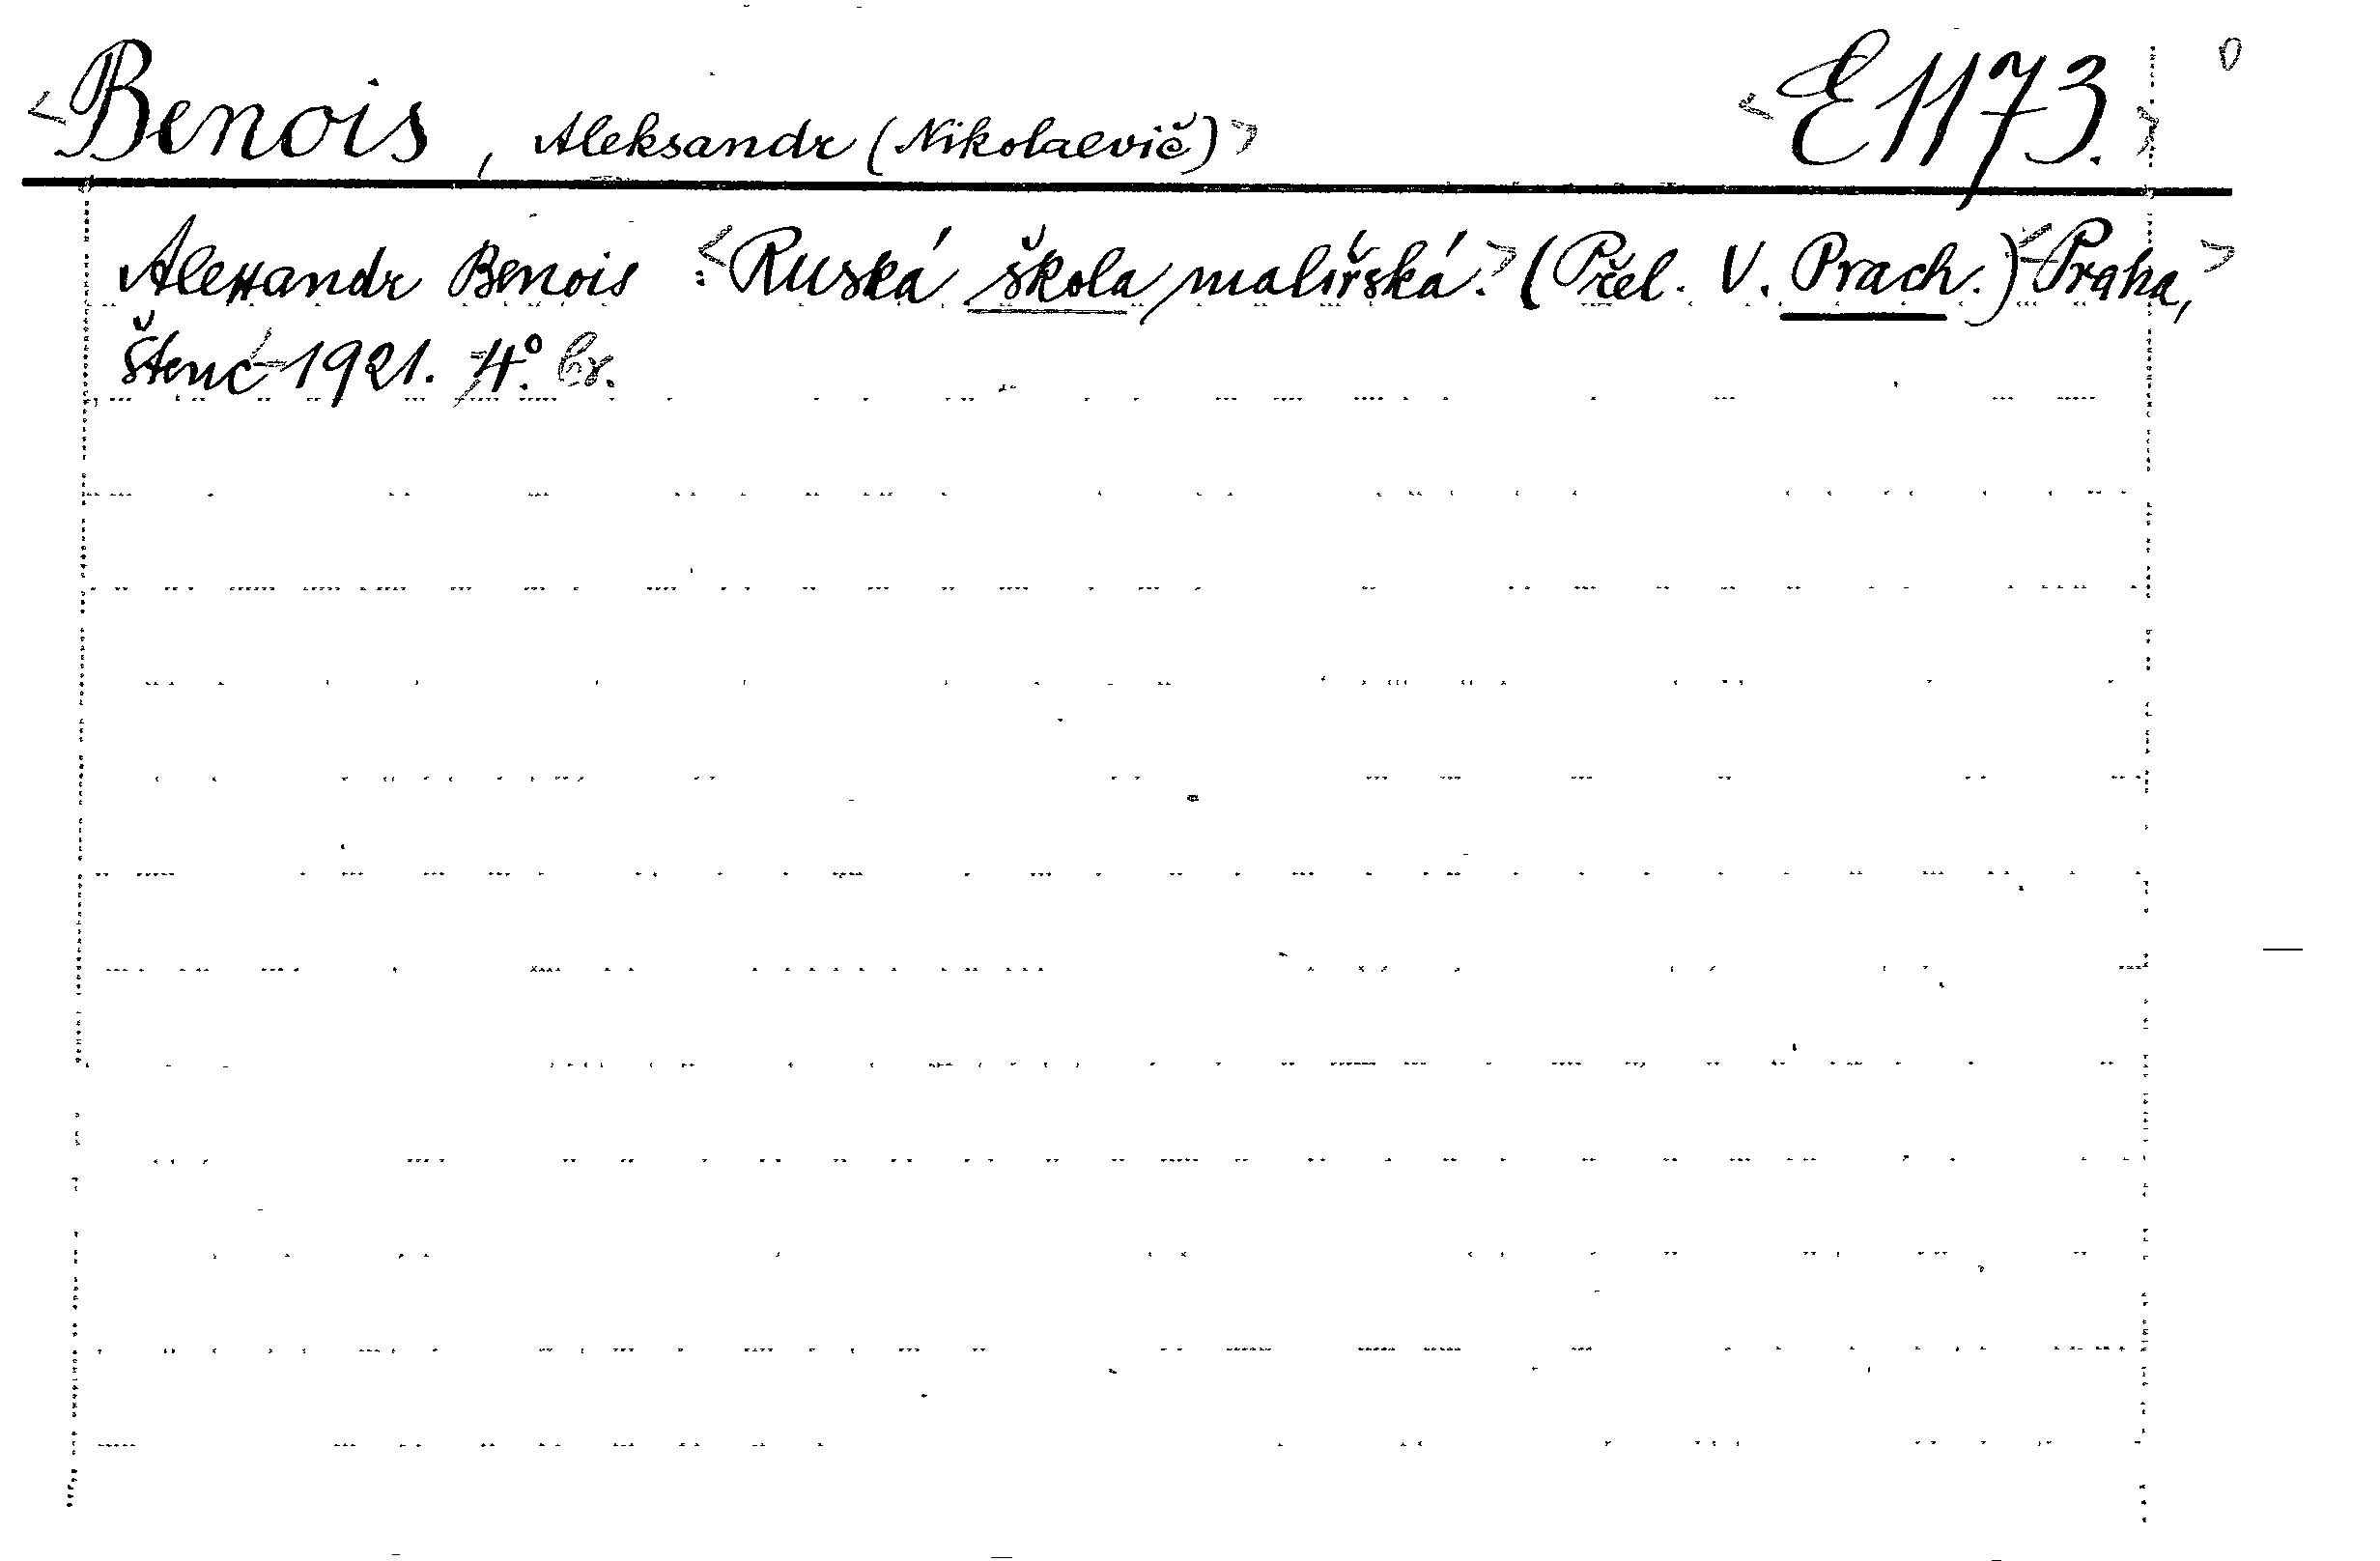 <Benois, Aleksandr (Nikolaevič)> <E1173.> 0
Alexandr Benois: <Ruská škola malířská.> (Přel. V. Prach.) <Praha,>
Štenc 1921. 4°. br.